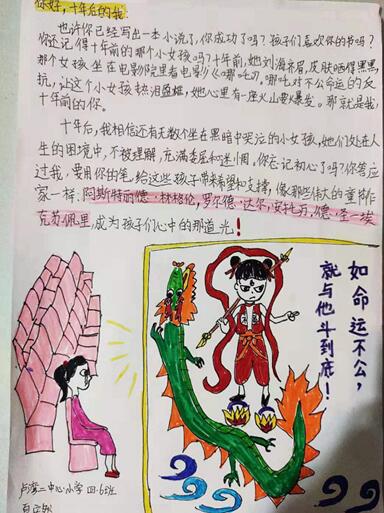 你好，十年后的我
也许你已经写出一本小说了，你成功了吗？孩子们喜欢你的书吗？
你还记得十年前的那个小女孩吗？十年前，她刘海齐眉，皮肤晒得黑黑，
那个女孩坐在电影院里看电影《哪吒》。哪吒对不公命运的反
抗，让这个小女孩热泪盈眶，她心里有一座火山要爆发。那就是我！
十年前的你。
十年后，我相信还有无数个坐在黑暗中哭泣的小女孩，她们处在人
生的困境中，不被理解，充满委屈和迷惘，你忘记初心了吗？你答应
过我，要用你的笔，给这些孩子带来希望和支撑，像那些伟大的童书作
家一样：阿斯特丽德·林格伦，罗尔德·达尔，安托万·德·圣－埃
克苏佩里，成为孩子们心中的那道光！
如命运不公，
就与他斗到底！
卢湾二中心小学 四·6班